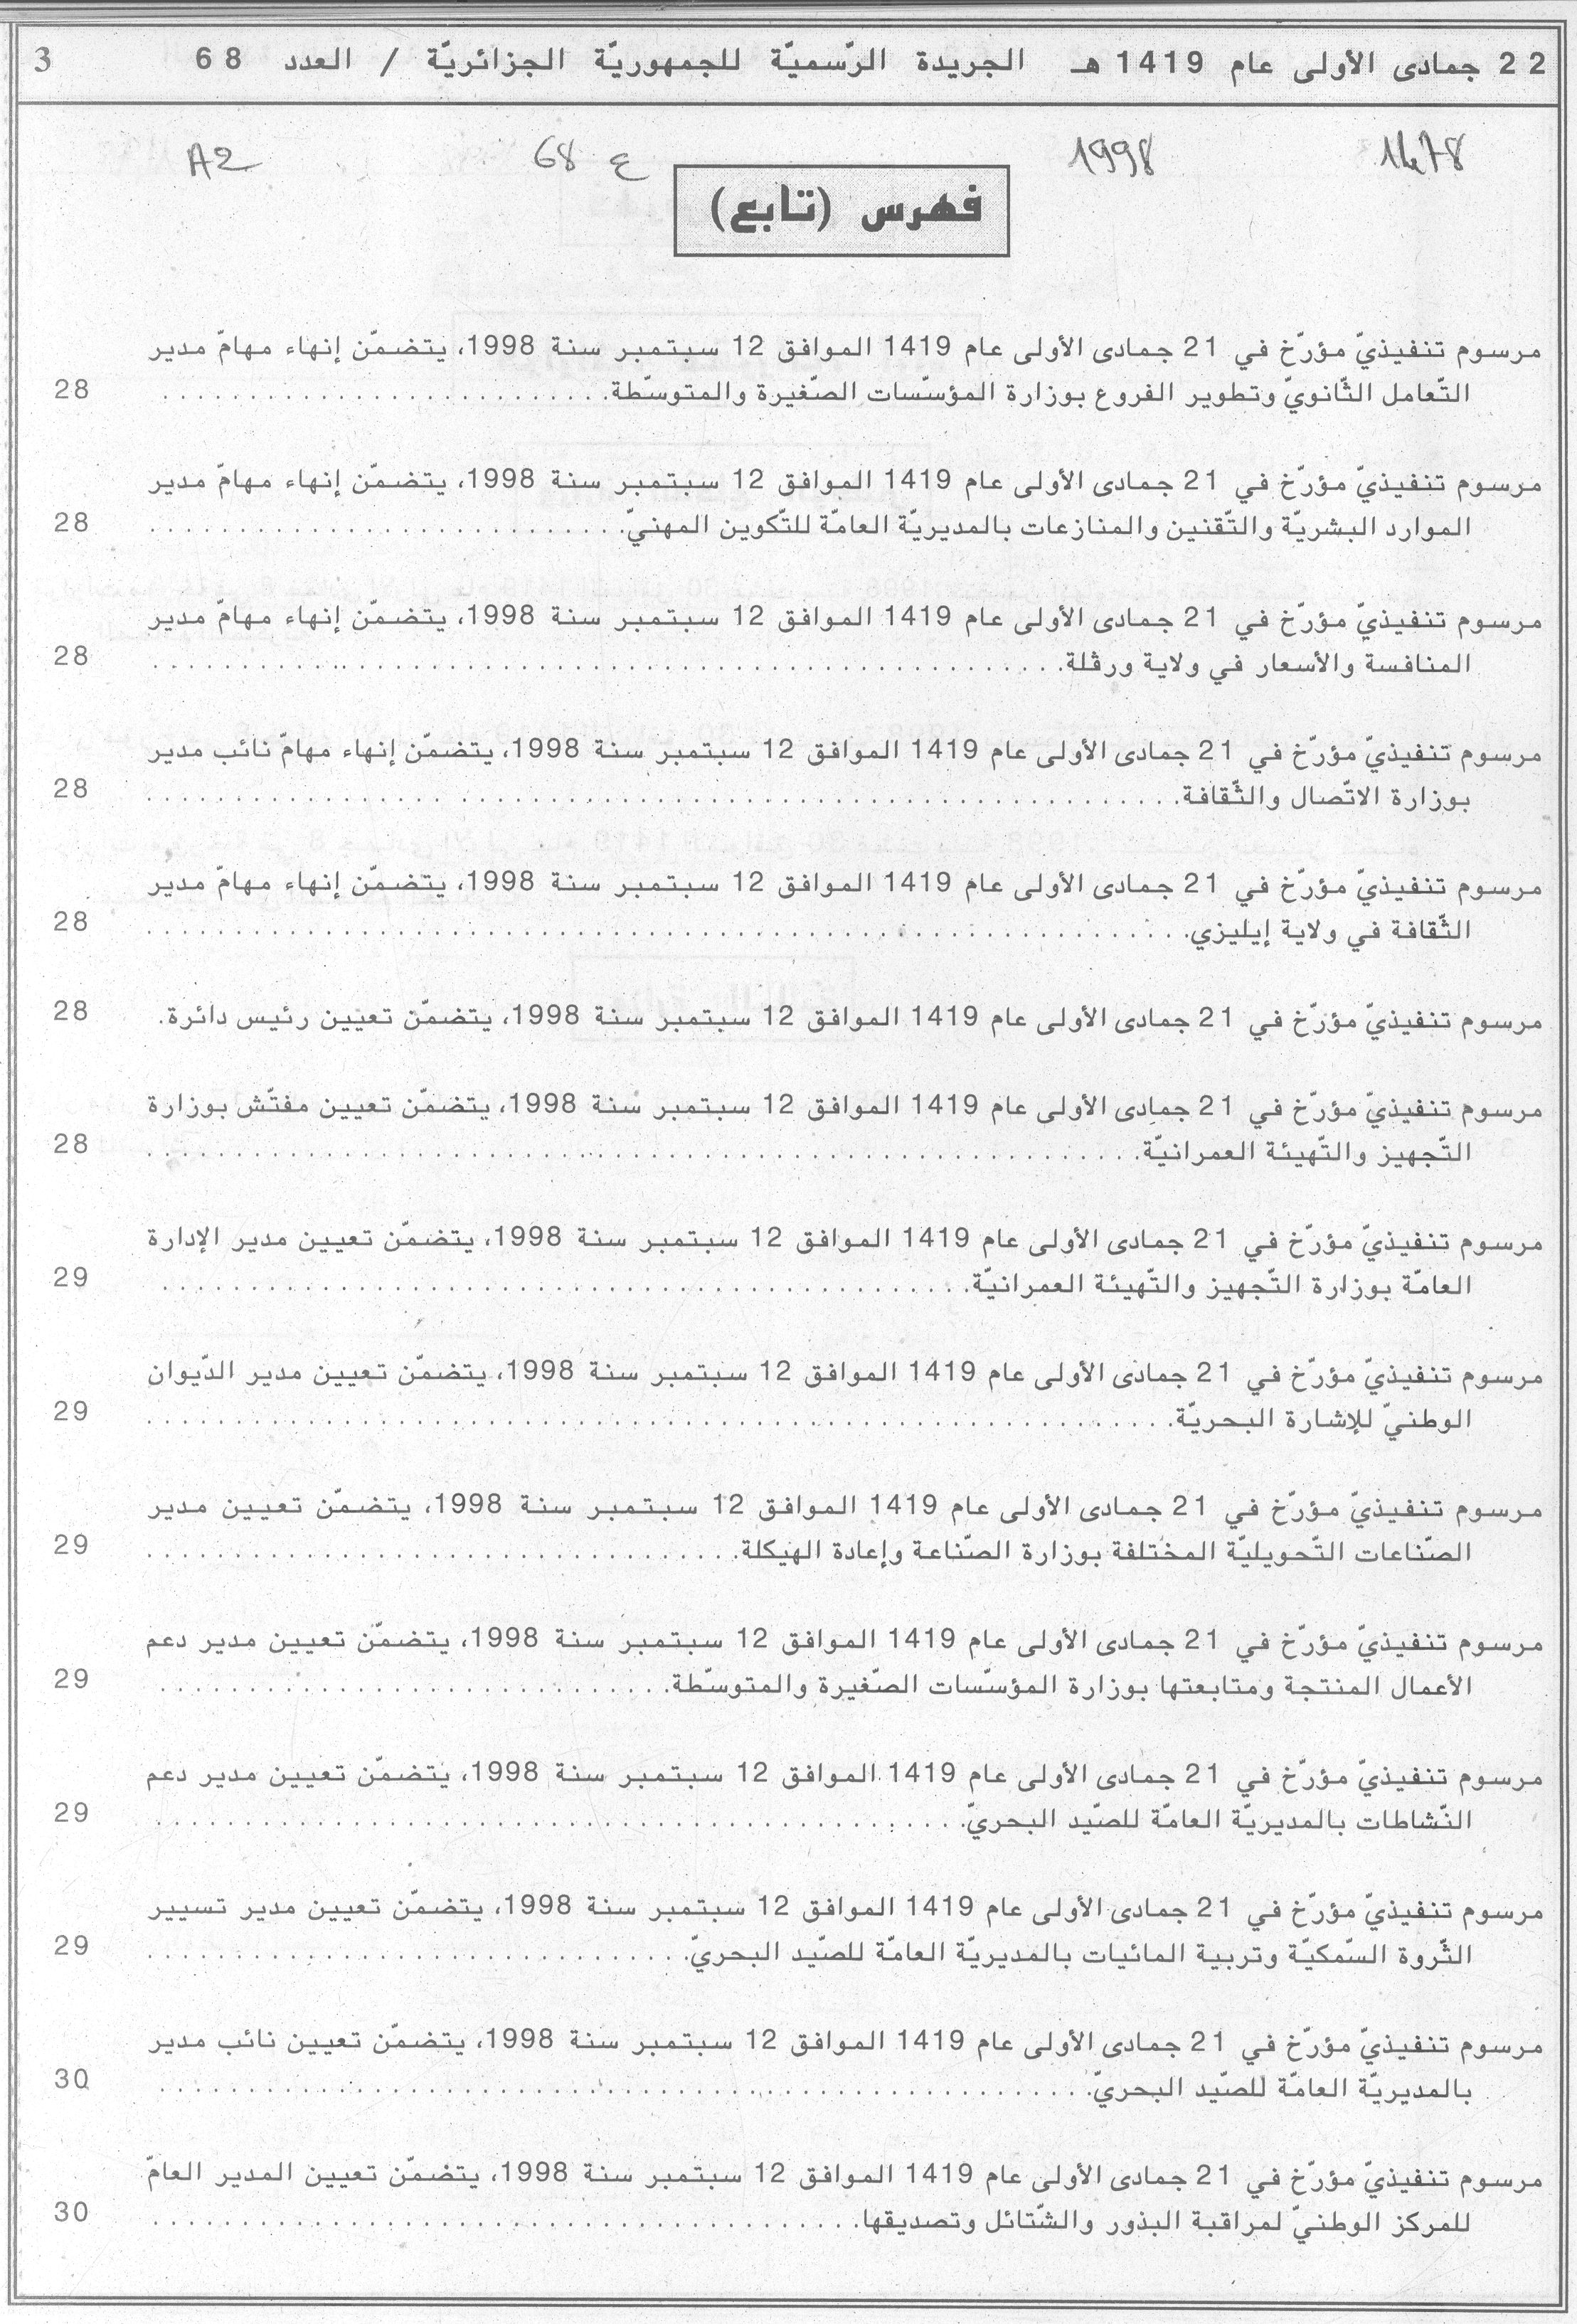 22 جمادى الأولى عام 1419 هـ الجريدة الرّسميّة للجمهوريّة الجزائريّة / العدد 68 3
1478 1998 ع 68 A2
فهرس (تابع)
مرسوم تنفيذيّ مؤرّخ في 21 جمادى الأولى عام 1419 الموافق 12 سبتمبر سنة 1998، يتضمّن إنهاء مهامّ مدير
التّعامل الثّانويّ وتطوير الفروع بوزارة المؤسّسات الصّغيرة والمتوسّطة. . . . . . . . . . . . . . . . . . . . 28
مرسوم تنفيذيّ مؤرّخ في 21 جمادى الأولى عام 1419 الموافق 12 سبتمبر سنة 1998، يتضمّن إنهاء مهامّ مدير
الموارد البشريّة والتّقنين والمنازعات بالمديريّة العامّة للتّكوين المهنيّ. . . . . . . . . . . . . . . . . . . . 28
مرسوم تنفيذيّ مؤرّخ في 21 جمادى الأولى عام 1419 الموافق 12 سبتمبر سنة 1998، يتضمّن إنهاء مهامّ مدير
المنافسة والأسعار في ولاية ورڤلة. . . . . . . . . . . . . . . . . . . . 28
مرسوم تنفيذيّ مؤرّخ في 21 جمادى الأولى عام 1419 الموافق 12 سبتمبر سنة 1998، يتضمّن إنهاء مهامّ نائب مدير
بوزارة الاتّصال والثّقافة. . . . . . . . . . . . . . . . . . . . 28
مرسوم تنفيذيّ مؤرّخ في 21 جمادى الأولى عام 1419 الموافق 12 سبتمبر سنة 1998، يتضمّن إنهاء مهامّ مدير
الثّقافة في ولاية إيليزي. . . . . . . . . . . . . . . . . . . . 28
مرسوم تنفيذيّ مؤرّخ في 21 جمادى الأولى عام 1419 الموافق 12 سبتمبر سنة 1998، يتضمّن تعيين رئيس دائرة. 28
مرسوم تنفيذيّ مؤرّخ في 21 جمادى الأولى عام 1419 الموافق 12 سبتمبر سنة 1998، يتضمّن تعيين مفتّش بوزارة
التّجهيز والتّهيئة العمرانيّة. . . . . . . . . . . . . . . . . . . . 28
مرسوم تنفيذيّ مؤرّخ في 21 جمادى الأولى عام 1419 الموافق 12 سبتمبر سنة 1998، يتضمّن تعيين مدير الإدارة
العامّة بوزارة التّجهيز والتّهيئة العمرانيّة. . . . . . . . . . . . . . . . . . . . 29
مرسوم تنفيذيّ مؤرّخ في 21 جمادى الأولى عام 1419 الموافق 12 سبتمبر سنة 1998، يتضمّن تعيين مدير الدّيوان
الوطنيّ للإشارة البحريّة. . . . . . . . . . . . . . . . . . . . 29
مرسوم تنفيذيّ مؤرّخ في 21 جمادى الأولى عام 1419 الموافق 12 سبتمبر سنة 1998، يتضمّن تعيين مدير
الصّناعات التّحويليّة المختلفة بوزارة الصّناعة وإعادة الهيكلة. . . . . . . . . . . . . . . . . . . . 29
مرسوم تنفيذيّ مؤرّخ في 21 جمادى الأولى عام 1419 الموافق 12 سبتمبر سنة 1998، يتضمّن تعيين مدير دعم
الأعمال المنتجة ومتابعتها بوزارة المؤسّسات الصّغيرة والمتوسّطة. . . . . . . . . . . . . . . . . . . . 29
مرسوم تنفيذيّ مؤرّخ في 21 جمادى الأولى عام 1419 الموافق 12 سبتمبر سنة 1998، يتضمّن تعيين مدير دعم
النّشاطات بالمديريّة العامّة للصّيد البحريّ. . . . . . . . . . . . . . . . . . . . 29
مرسوم تنفيذيّ مؤرّخ في 21 جمادى الأولى عام 1419 الموافق 12 سبتمبر سنة 1998، يتضمّن تعيين مدير تسيير
الثّروة السّمكيّة وتربية المائيات بالمديريّة العامّة للصّيد البحريّ. . . . . . . . . . . . . . . . . . . . 29
مرسوم تنفيذيّ مؤرّخ في 21 جمادى الأولى عام 1419 الموافق 12 سبتمبر سنة 1998، يتضمّن تعيين نائب مدير
بالمديريّة العامّة للصّيد البحريّ. . . . . . . . . . . . . . . . . . . . 30
مرسوم تنفيذيّ مؤرّخ في 21 جمادى الأولى عام 1419 الموافق 12 سبتمبر سنة 1998، يتضمّن تعيين المدير العامّ
للمركز الوطنيّ لمراقبة البذور والشّتائل وتصديقها. . . . . . . . . . . . . . . . . . . . 30